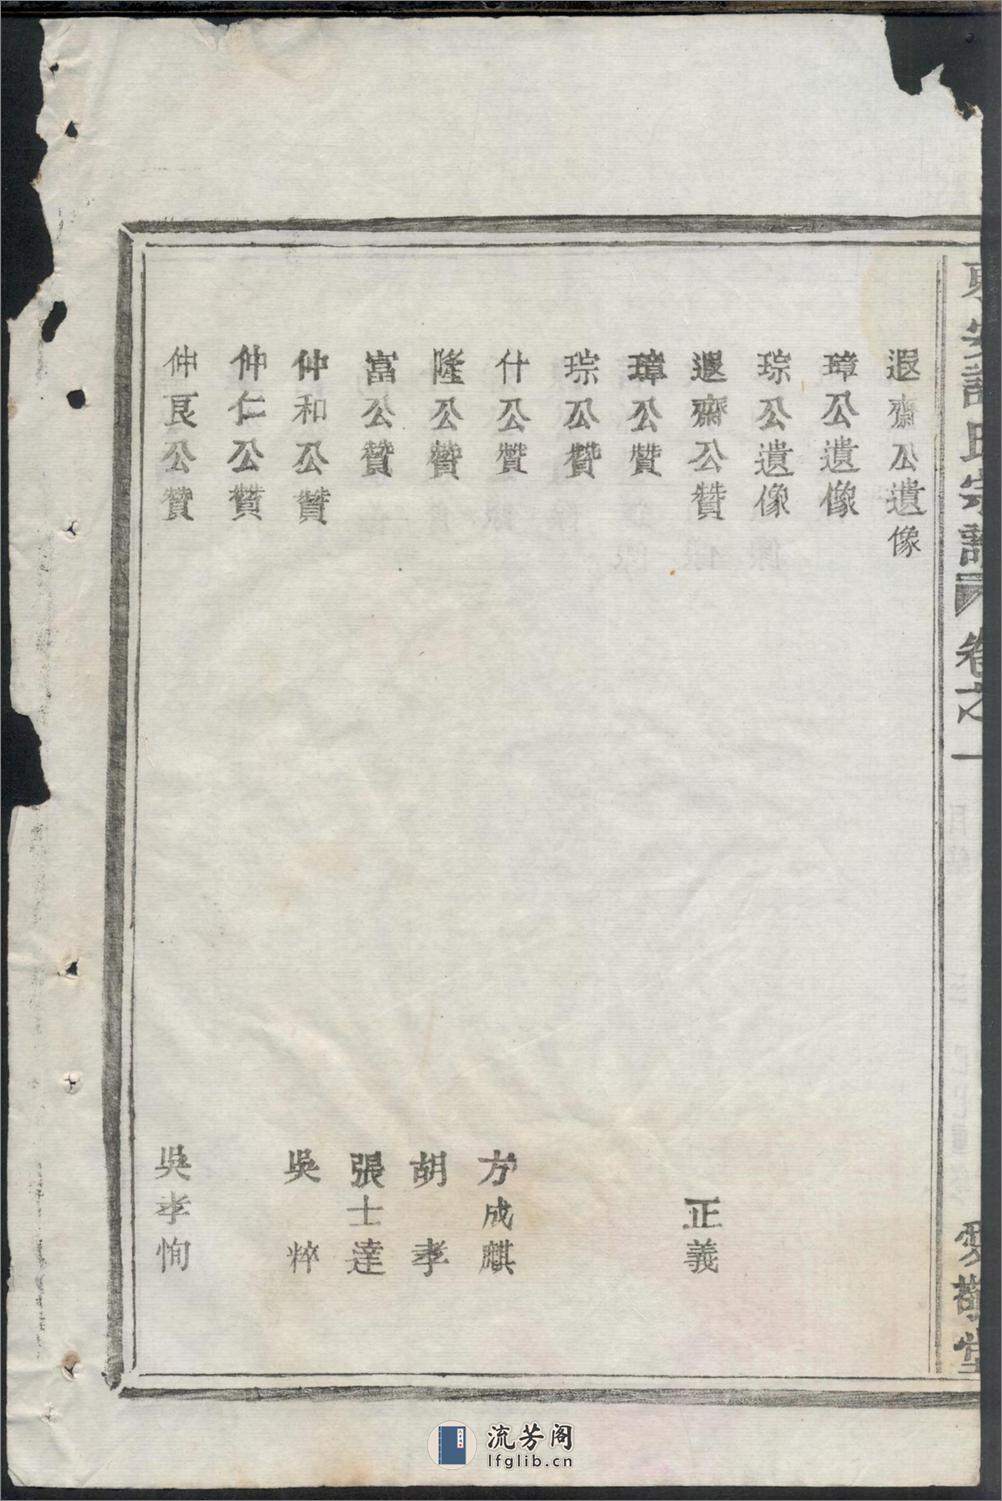 宗譜 卷之一 愛敬堂
遐齋公遺像
璋公遺像
琮公遺像
遐齋公贊 正義
璋公贊
琮公贊
什公贊 方成麒
隆公贊 胡孝
富公贊 張士達
仲和公贊 吳粹
仲仁公贊
仲良公贊 吳孝恂
流芳阁
lfglib.cn